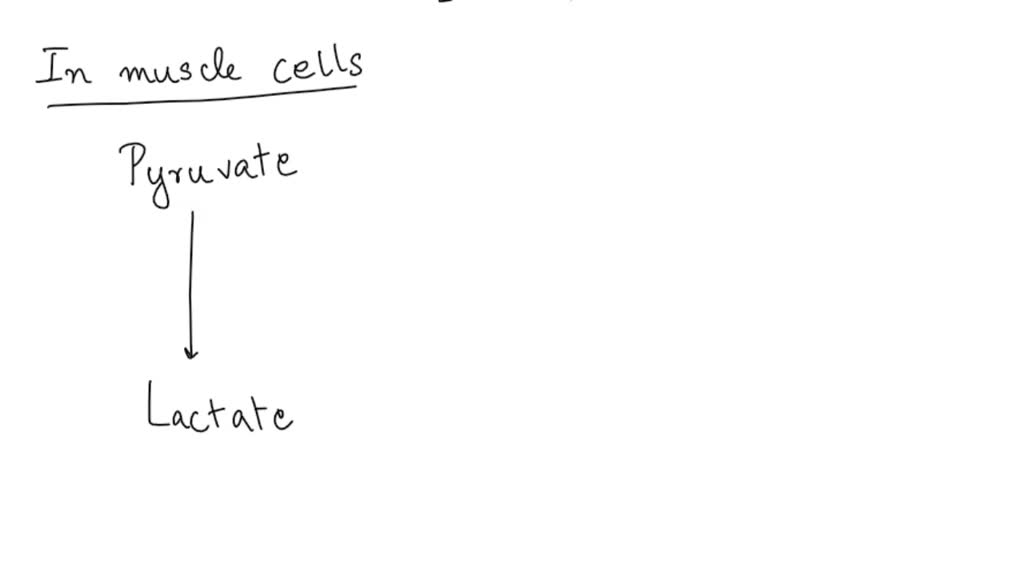 In muscle cells
Pyruvate
Lactate